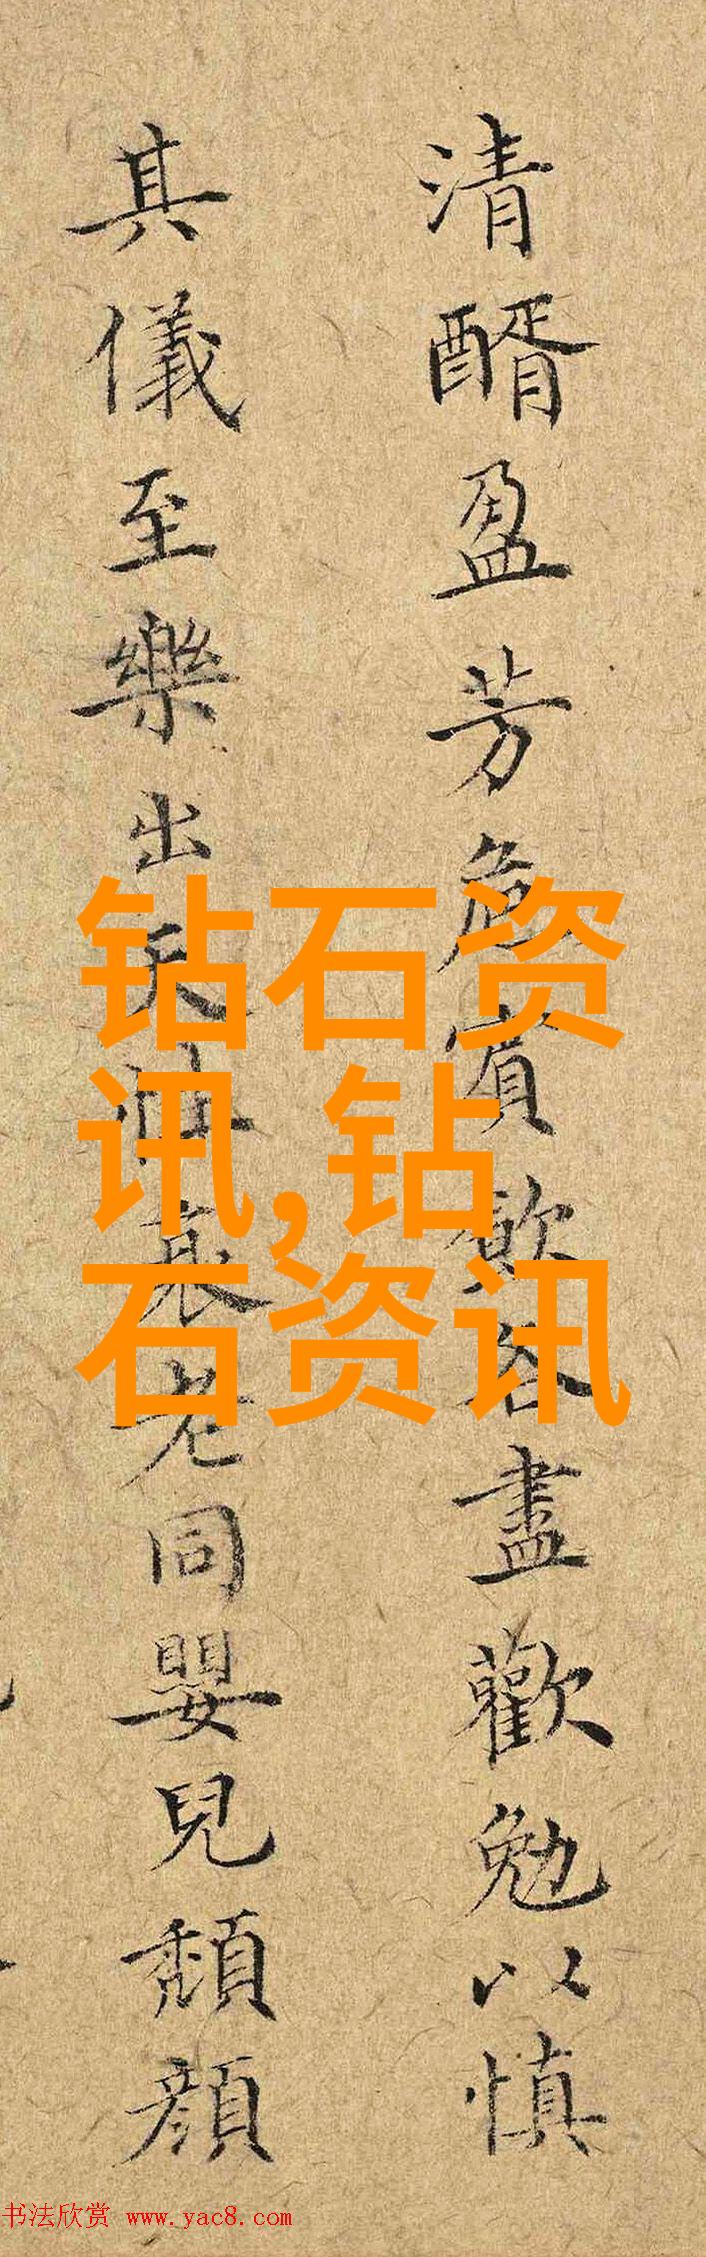 清醑盈芳巵賓飲各盡歡勉以慎
其儀至樂出天性衰老同嬰兒頽顏
钻石资
讯,钻
石资讯
书法欣赏 www.yac8.com